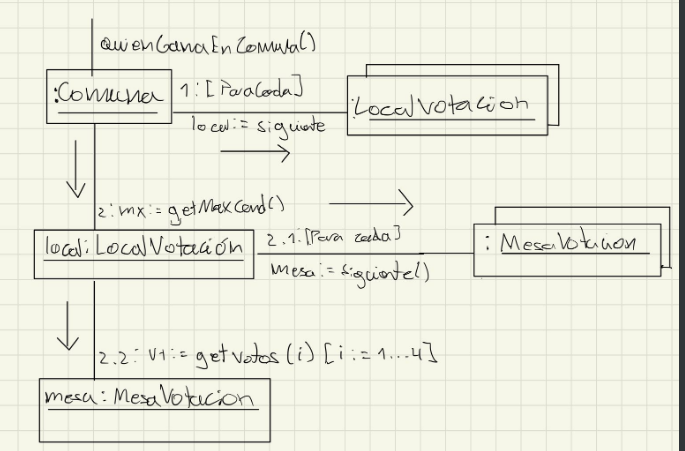 quienGanaEnComuna()
:Comuna
1:[ParaCada]
local:= siguiente
:LocalVotacion
2:mx:=getMaxCand()
local:LocalVotación
2.1:[Para cada]
mesa:=siguiente()
:MesaVotacion
2.2: V1:= getvotos(i) [i:=1...4]
mesa:MesaVotacion